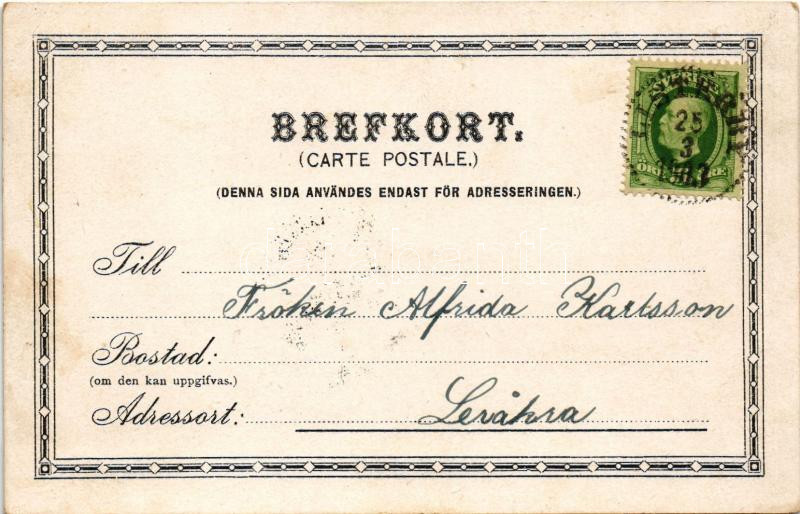 BREFKORT.
(CARTE POSTALE.)
(DENNA SIDA ANVÄNDES ENDAST FÖR ADRESSERINGEN.)
25
3
Till
Fröken Alfrida Karlsson
Bostad:
(om den kan uppgifvas.)
Adressort:
Leråkra